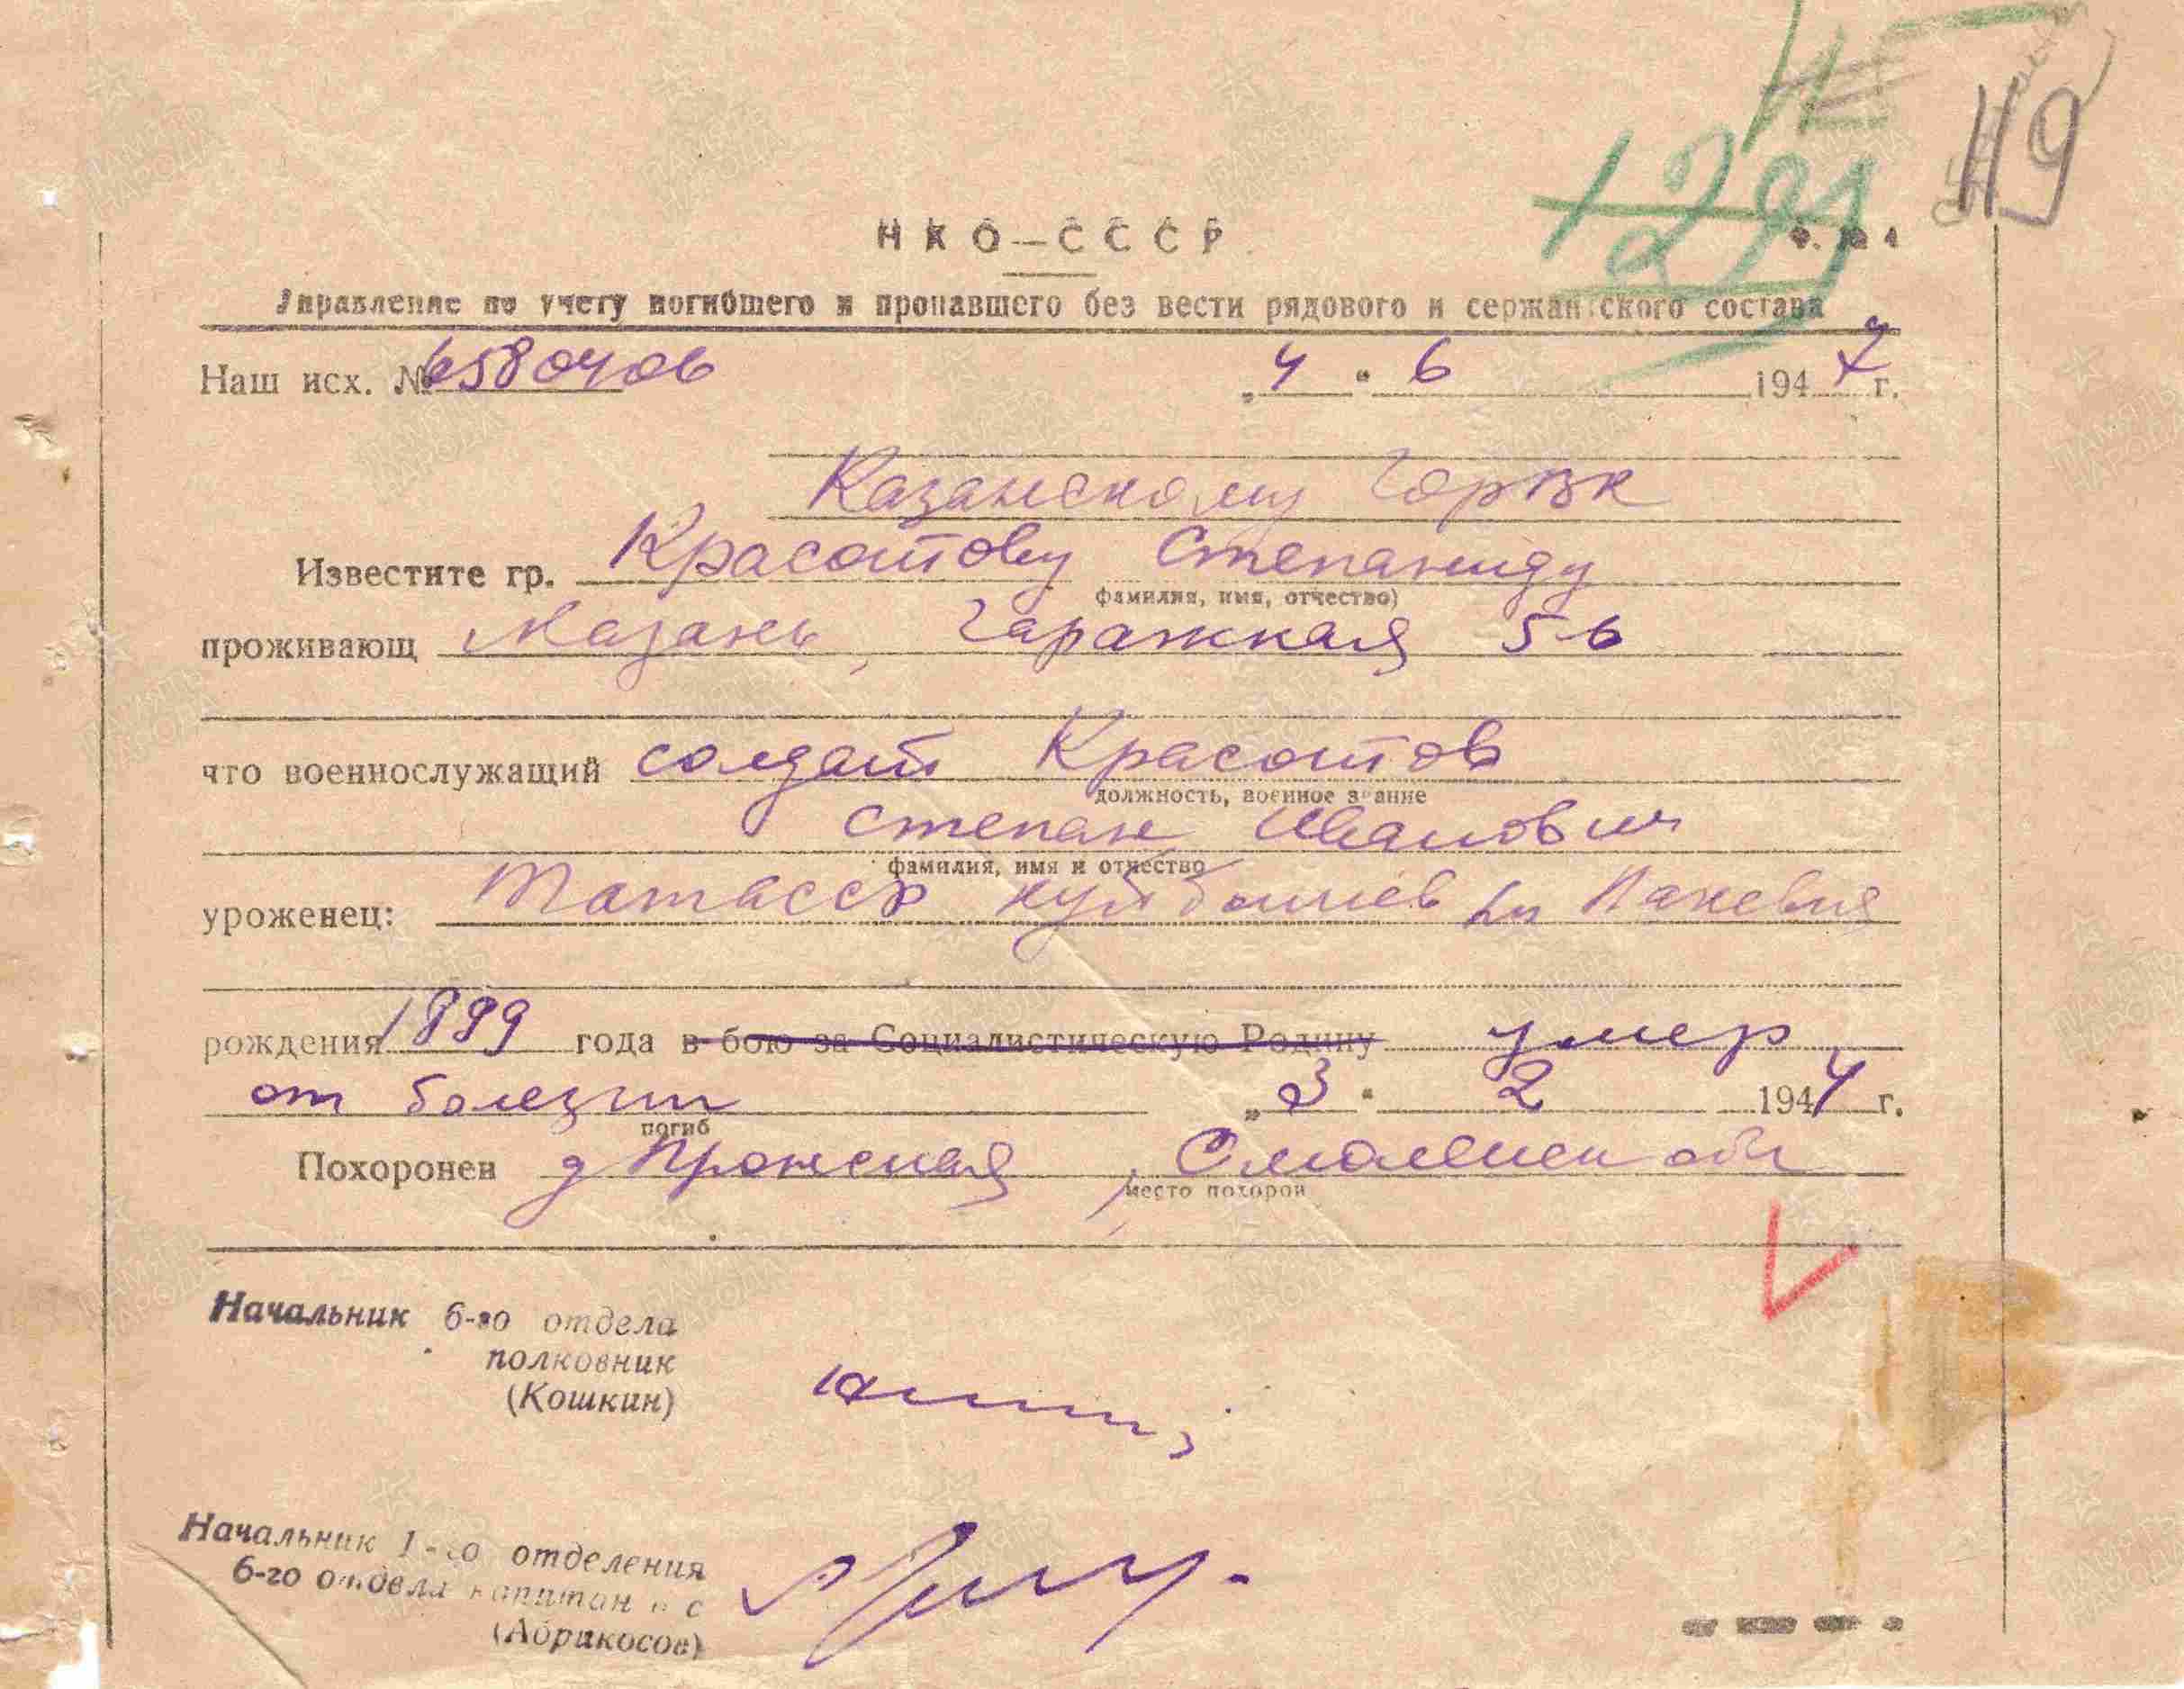 119
1291
НКО—СССР
Ф. № 4
Управление по учету погибшего и пропавшего без вести рядового и сержантского состава
Наш исх. № 6580406 „4“ 6 1947 г.
Казанскому ГорВК
Известите гр. Красотову Степаниду
фамилия, имя, отчество)
проживающ Казань, Гаражная 56
что военнослужащий солдат Красотов
должность, военное звание
Степан Иванович
фамилия, имя и отчество
уроженец: ТатАССР Куйбышев рн
рождения 1899 года в бою за Социалистическую Родину умер
от болезни „3“ 2 1944 г.
погиб
Похоронен д Пронская, Смоленск обл
место похорон
Начальник 6-го отдела
полковник
(Кошкин)
Начальник 1-го отделения
6-го отдела капитан а/с
(Абрикосов)